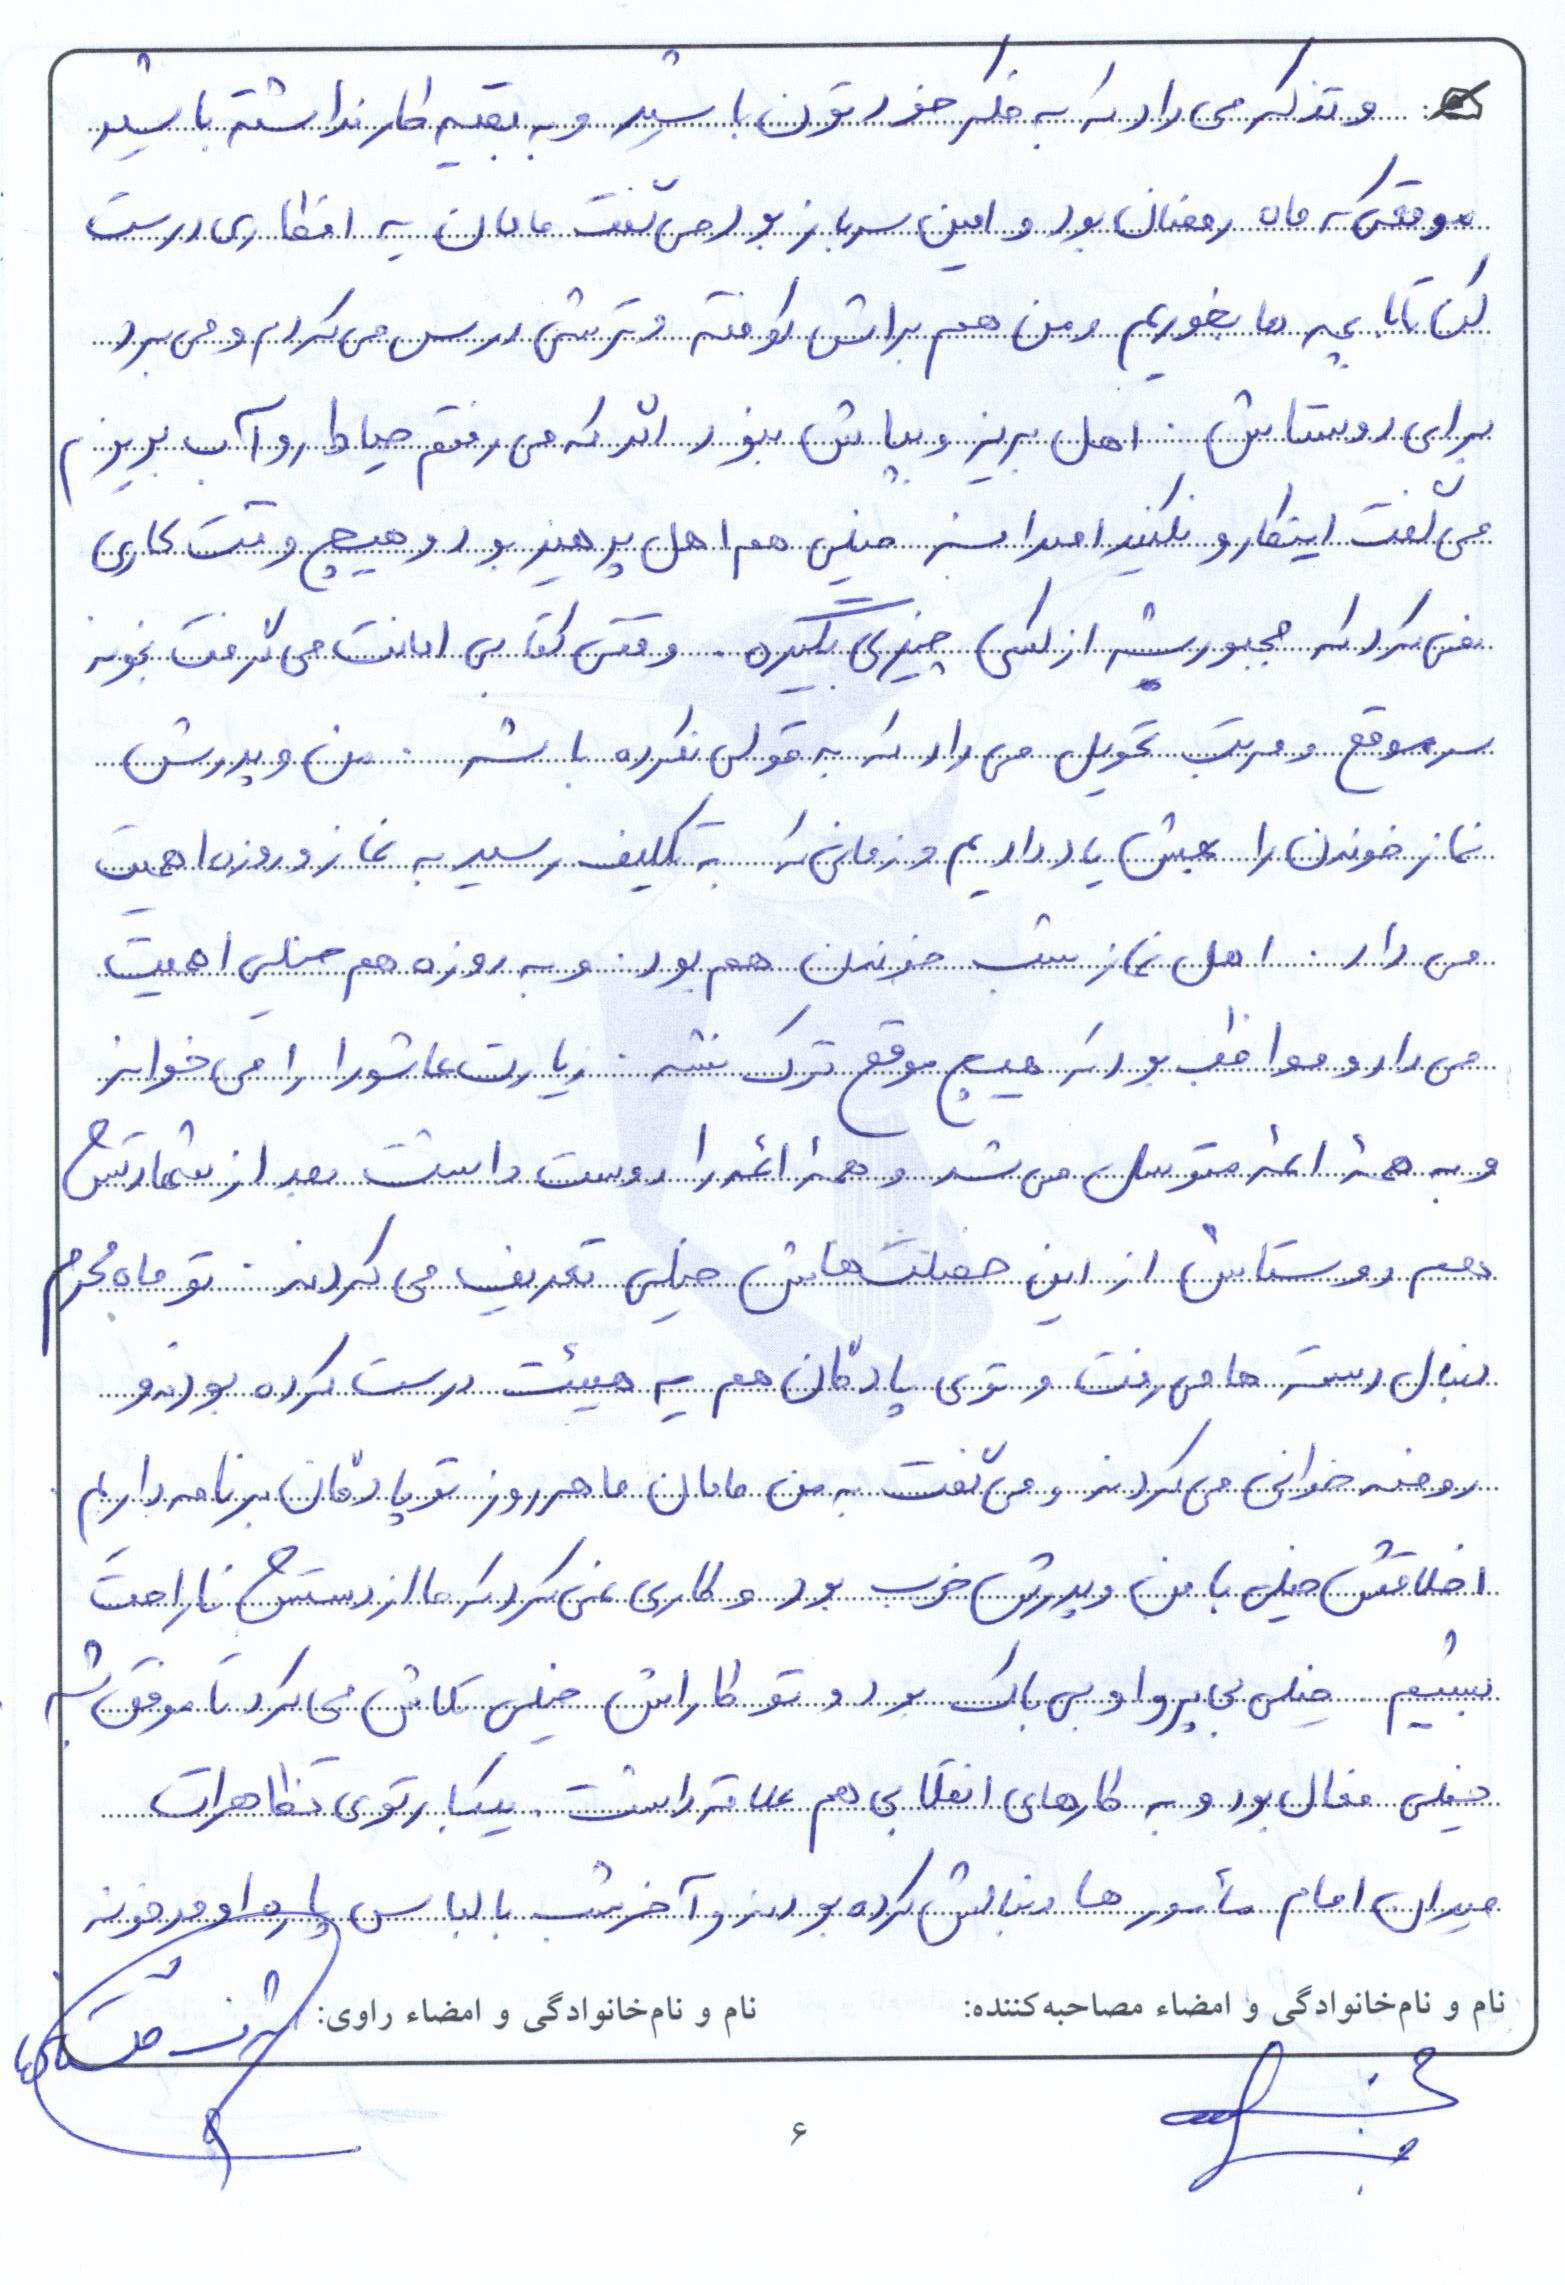 و تذکر می داد که به فکر خودتون باشید و به بقیه کار نداشته باشید
موقعی که ماه رمضان بود و امین سرباز بود می گفت مامان یه افطاری درست
کن تا با بچه ها بخوریم و من هم براش کوفته و ترشی درس می کردم و می برد
برای دوستاش . اهل بریز و بپاش نبود اگر که می رفتم حیاط رو آب بریزم
می گفت اینکارو نکنید اسرافه خیلی هم اهل پرهیز بود و هیچ وقت کاری
نمی کرد که مجبور بشه از کسی چیزی بگیره . وقتی کتابی امانت می گرفت بخونه
سر موقع و مرتب تحویل می داد که به قولی نکرده باشه . من و پدرش
نماز خوندن را بهش یاد دادیم و زمانی که به تکلیف رسید به نماز و روزه اهمیت
می داد . اهل نماز شب خوندن هم بود . و به روزه هم خیلی اهمیت
می داد و مواظب بود که هیچ موقع ترک نشه . زیارت عاشورا را می خواند
و به همهٔ ائمه متوسل می شد و همهٔ ائمه را دوست داشت بعد از شهادتش
هم دوستاش از این خصلت هاش خیلی تعریف می کردند . تو ماه محرم
دنبال دسته ها می رفت و توی پادگان هم یه هیئت درست کرده بودند و
روضه خوانی می کردند و می گفت به من مامان ما هر روز تو پادگان برنامه داریم
اخلاقش خیلی با من و پدرش خوب بود و کاری نمی کرد که ما از دستش ناراحت
بشیم خیلی بی پروا و بی باک بود و تو کاراش خیلی تلاش می کرد تا موفق بشه
خیلی فعال بود و به کارهای انقلابی هم علاقه داشت . یکبار توی تظاهرات
میدان امام مأمورها دنبالش کرده بودند و آخر شب با لباس پاره اومد خونه
نام و نام‌خانوادگی و امضاء مصاحبه‌کننده:
نام و نام‌خانوادگی و امضاء راوی:
۶